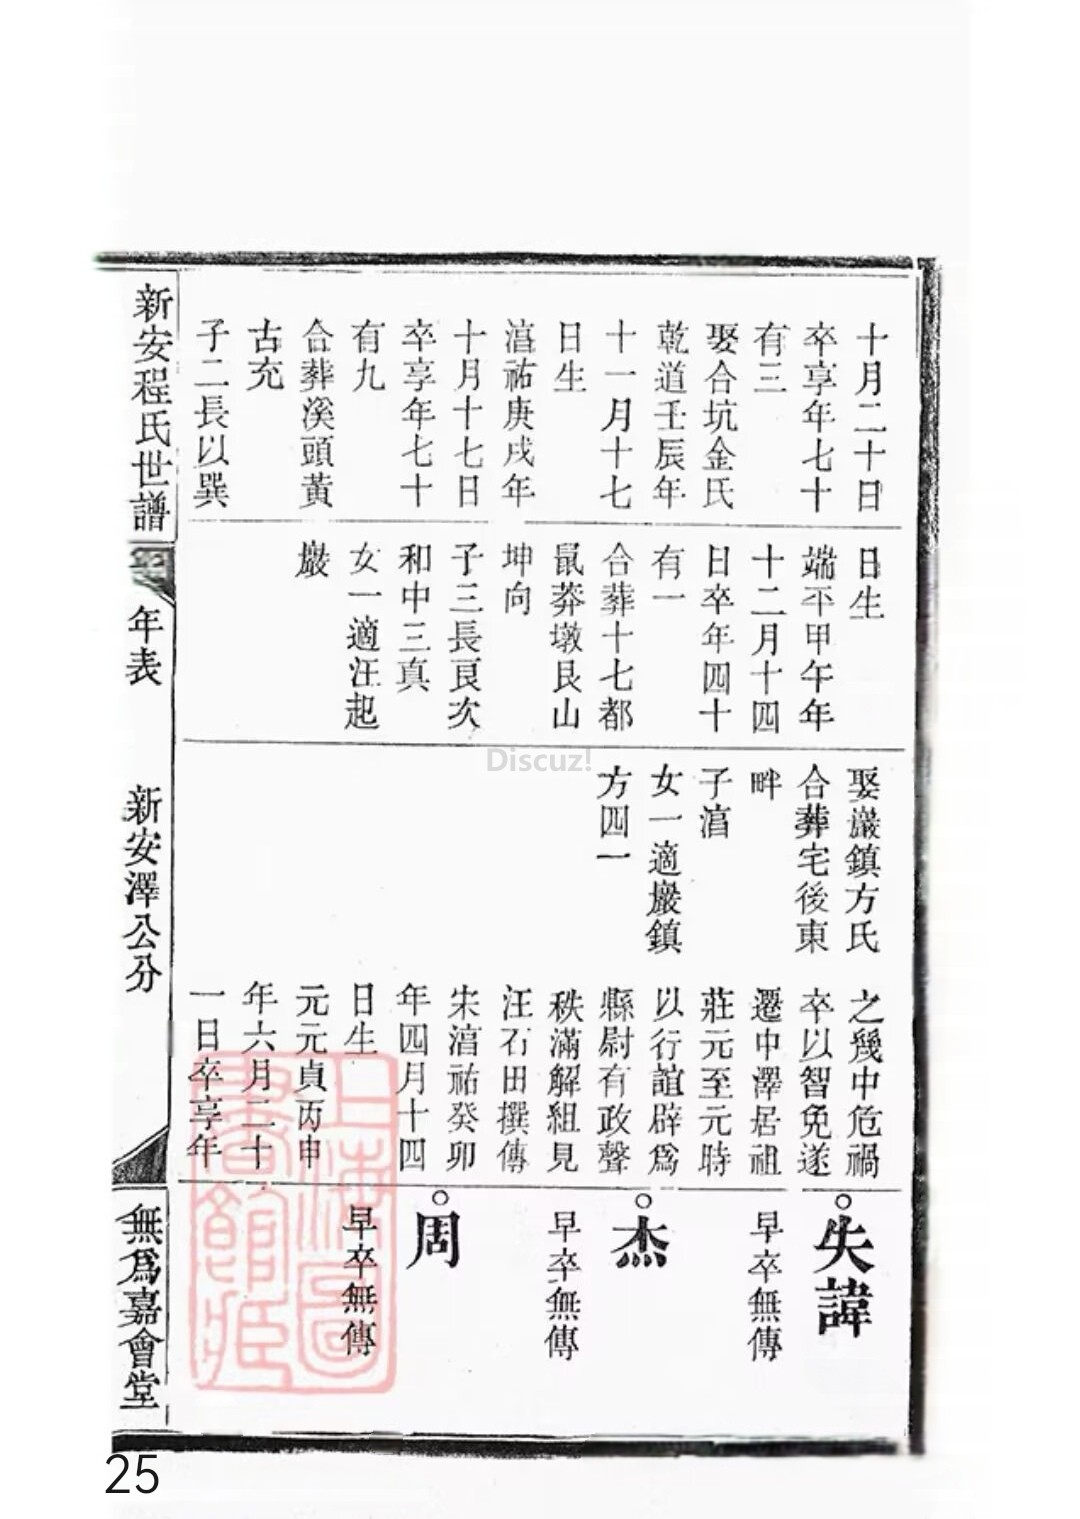 十月二十日
卒享年七十
有三
娶合坑金氏
乾道壬辰年
十一月十七
日生
淳祐庚戌年
十月十七日
卒享年七十
有九
合葬溪頭黃
古充
子二長以巽
日生
端平甲午年
十二月十四
日卒年四十
有一
合葬十七都
鼠莽墩艮山
坤向
子三長頁次
和中三真
女一適汪起
巖
娶巖鎮方氏
合葬宅後東
畔
子淯
女一適巖鎮
方四一
之幾中危禍
卒以智免遂
遷中澤居祖
莊元至元時
以行誼辟爲
縣尉有政聲
秩滿解組見
汪石田撰傳
宋淳祐癸卯
年四月十四
日生
元元貞丙申
年六月二十
一日卒享年
失諱
早卒無傳
杰
早卒無傳
周
早卒無傳
新安程氏世譜
年表
新安澤公分
無爲嘉會堂
上海圖書館藏
Discuz!
25